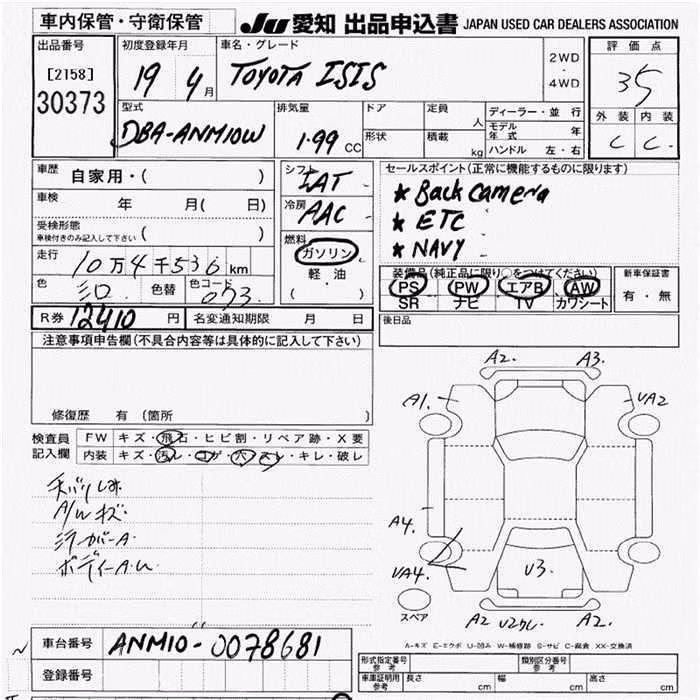 車内保管・守衛保管
JU 愛知 出品申込書 JAPAN USED CAR DEALERS ASSOCIATION
出品番号 初度登録年月 車名・グレード 評価点
[2158] 19 4月 TOYOTA ISIS 2WD・4WD 35
30373
型式 排気量 ドア 定員 人 ディーラー・並行 外装 内装
DBA-ANM10W 1.99 CC 形状 積載 kg モデル年式 年 C C
ハンドル 左・右
車歴 自家用・( ) シフト IAT セールスポイント(正常に機能するものに限ります)
車検 年 月( 日) 冷房 AAC ★ Back camera
受検形態 ( ) ★ ETC
車検付きのみ記入して下さい 燃料 ★ NAVY
走行 10万4千536 km ガソリン
軽・油
(・)
装備品(純正品に限り○をつけてください) 新車保証書
色 色替 色コード 073 PS PW エアB AW 有・無
SR ナビ TV カワシート
R券 12410 円 名変通知期限 月 日 後日品
注意事項申告欄(不具合内容等は具体的に記入して下さい)
修復歴 有(箇所
検査員記入欄 FW キズ・飛石・ヒビ割・リペア跡・X要
内装 キズ・汚レ・コゲ・穴・スレ・キレ・破レ
A/W キズ
ボディーA.U
A2. A3.
A1. UA2
A4.
UA4. U3.
スペア A2 A2.
A-キズ E-エクボ U-凹み W-補修跡 S-サビ C-腐食 XX-交換済
車台番号 ANM10-0078681
登録番号
形式指定番号 参考 類別区分番号 参考
車庫証明用 参考 長さ cm 幅 cm 高さ cm